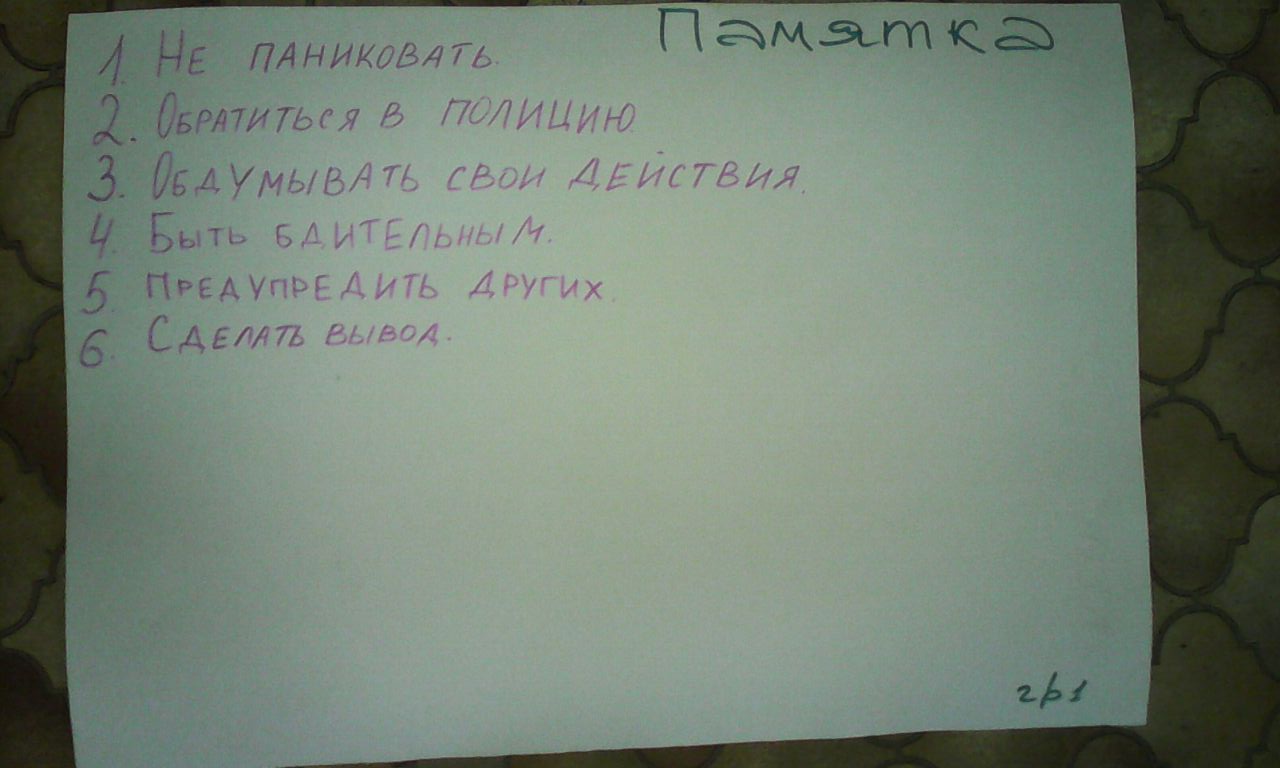 Памятка
1. Не паниковать.
2. Обратиться в полицию.
3. Обдумывать свои действия.
4. Быть бдительным.
5. Предупредить других.
6. Сделать вывод.
гр1